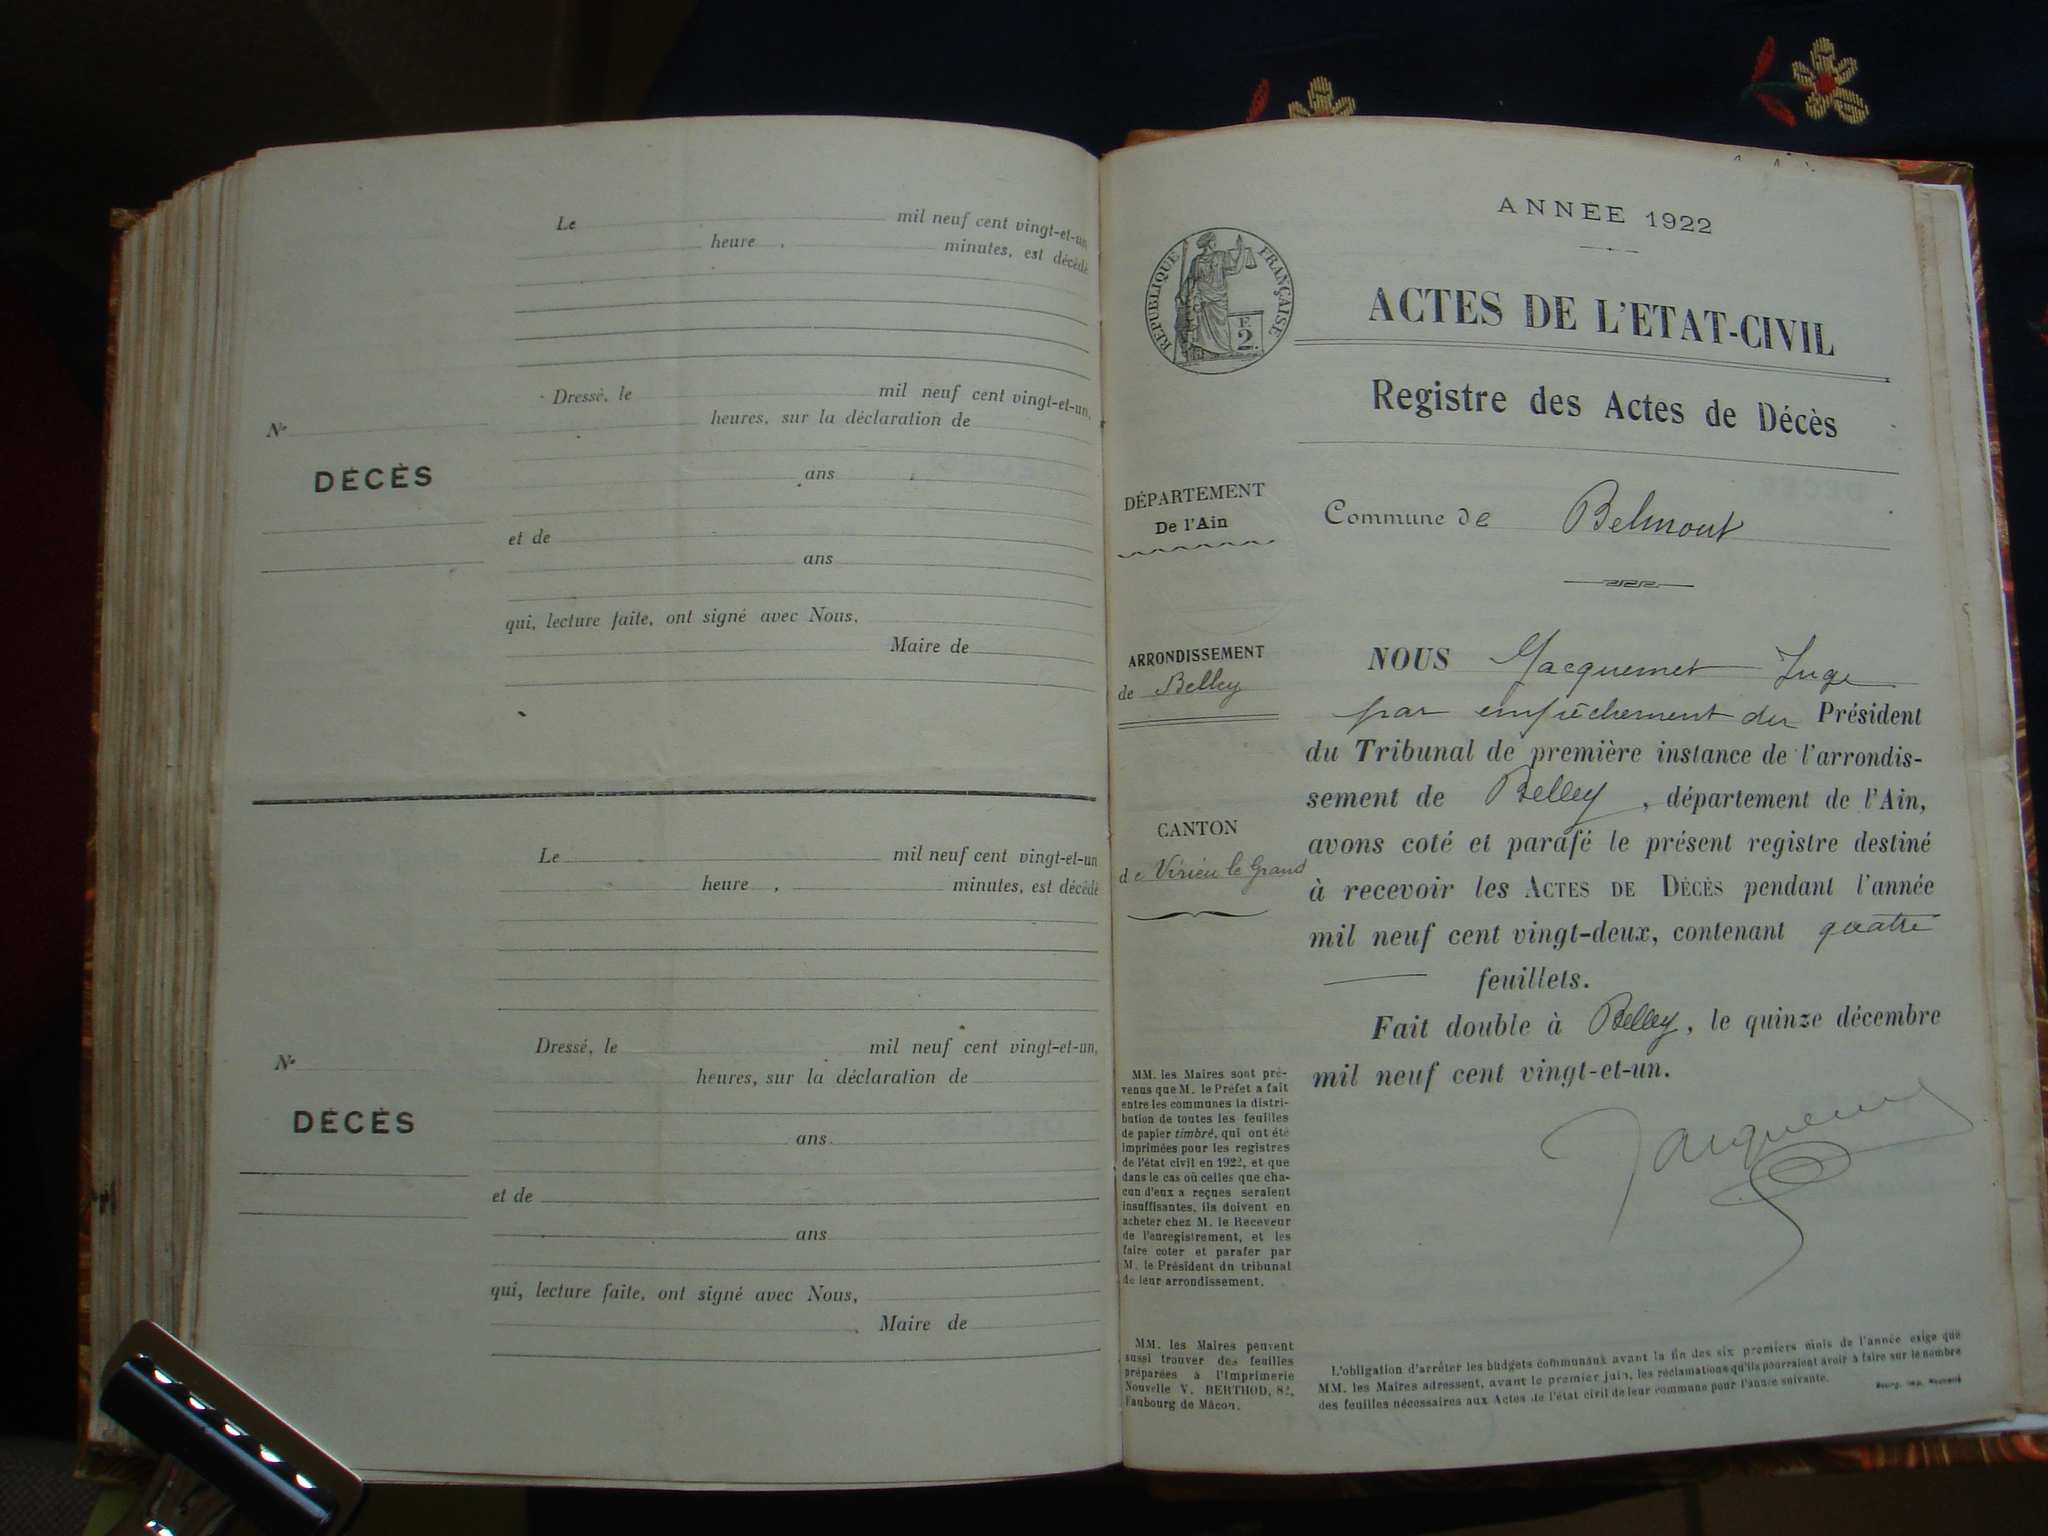 Le mil neuf cent vingt-et-un
heure , minutes, est décédé
Dressé, le mil neuf cent vingt-et-un,
heures, sur la déclaration de
N°
ans
DÉCÈS
et de
ans
qui, lecture faite, ont signé avec Nous,
Maire de
Le mil neuf cent vingt-et-un
heure , minutes, est décédé
Dressé, le mil neuf cent vingt-et-un,
N°
heures, sur la déclaration de
DÉCÈS
ans
et de
ans
qui, lecture faite, ont signé avec Nous,
Maire de
ANNÉE 1922
RÉPUBLIQUE FRANÇAISE
F.
2.
ACTES DE L'ETAT-CIVIL
Registre des Actes de Décès
DÉPARTEMENT
De l'Ain
Commune de Belmont
ARRONDISSEMENT
de Belley
CANTON
de Virieu le Grand
NOUS Jacquemet Juge
par empêchement du Président
du Tribunal de première instance de l'arrondis-
sement de Belley , département de l'Ain,
avons coté et parafé le présent registre destiné
à recevoir les ACTES DE DÉCÈS pendant l'année
mil neuf cent vingt-deux, contenant quatre
feuillets.
Fait double à Belley, le quinze décembre
mil neuf cent vingt-et-un.
Jacquemet
MM. les Maires sont pré-
venus que M. le Préfet a fait
entre les communes la distri-
bution de toutes les feuilles
de papier timbré, qui ont été
imprimées pour les registres
de l'état civil en 1922, et que
dans le cas où celles que cha-
cun d'eux a reçues seraient
insuffisantes, ils doivent en
acheter chez M. le Receveur
de l'enregistrement, et les
faire coter et parafer par
M. le Président du tribunal
de leur arrondissement.
MM. les Maires peuvent
aussi trouver des feuilles
préparées à l'Imprimerie
Nouvelle V. BERTHOD, 82,
Faubourg de Mâcon.
L'obligation d'arrêter les budgets communaux avant la fin des six premiers mois de l'année exige que
MM. les Maires adressent, avant le premier juin, les réclamations qu'ils pourraient avoir à faire sur le nombre
des feuilles nécessaires aux Actes de l'état civil de leur commune pour l'année suivante.
Bourg, Imp. Nouvelle